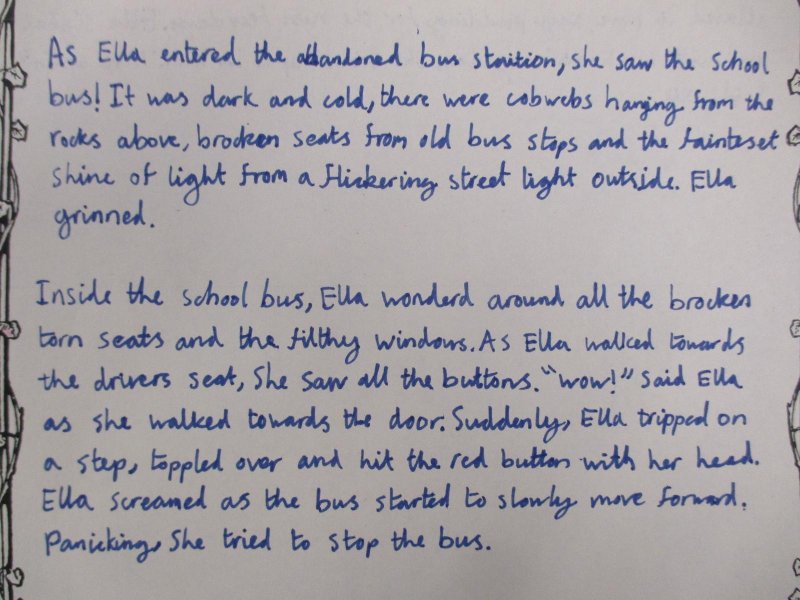 As Ella entered the abandoned bus staition, she saw the school
bus! It was dark and cold, there were cobwebs hanging from the
rocks above, brocken seats from old bus stops and the fainteset
shine of light from a flickering street light outside. Ella
grinned.
Inside the school bus, Ella wonderd around all the brocken
torn seats and the filthy windows. As Ella walked towards
the drivers seat, She saw all the buttons. "wow!" Said Ella
as she walked towards the door. Suddenly, Ella tripped on
a step, toppled over and hit the red button with her head.
Ella screamed as the bus started to slowly move forward.
Panicking, She tried to stop the bus.